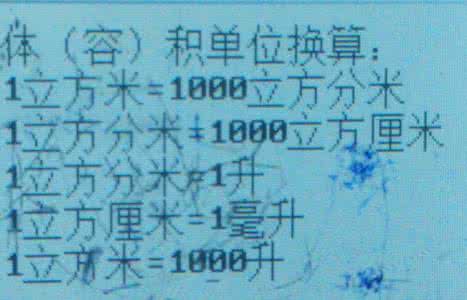 体（容）积单位换算：
1立方米=1000立方分米
1立方分米=1000立方厘米
1立方分米=1升
1立方厘米=1毫升
1立方米=1000升